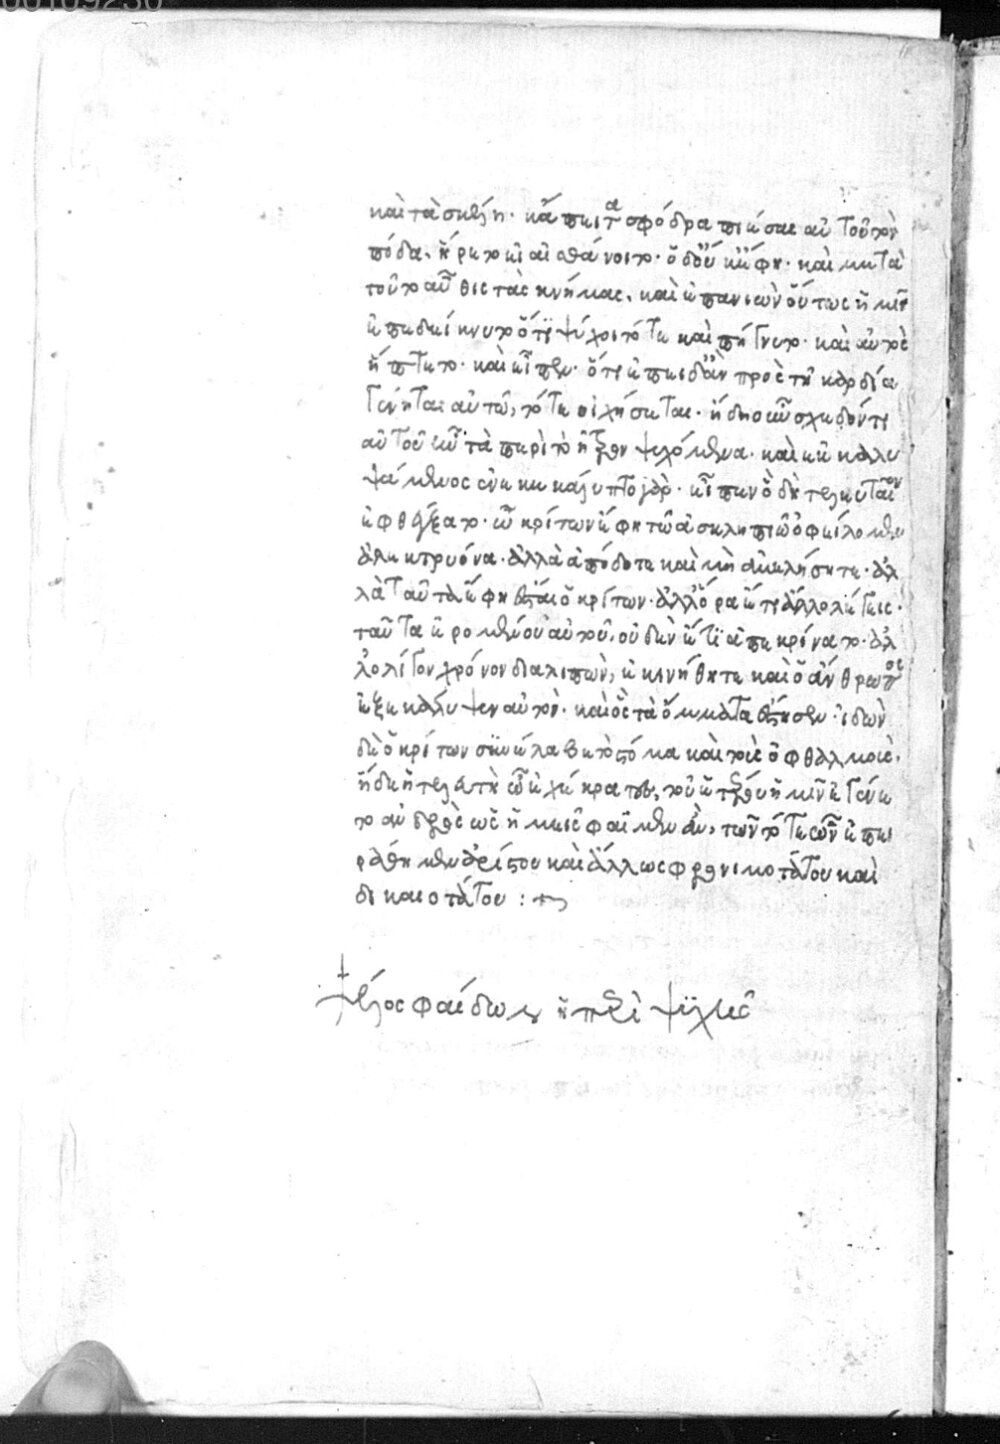 00109230
καὶ τὰ σκέλη· κἄπειτα σφόδρα πιέσας αὐτοῦ τὸν
πόδα, ἤρετο εἰ αἰσθάνοιτο· ὁ δ' οὐκ ἔφη· καὶ μετὰ
τοῦτο αὖθις τὰς κνήμας, καὶ ἐπανιὼν οὕτως ἡμῖν
ἐπεδείκνυτο ὅτι ψύχοιτό τε καὶ πήγνυτο· καὶ αὐτὸς
ἥπτετο· καὶ εἶπεν· ὅτι ἐπειδὰν πρὸς τῇ καρδίᾳ
γένηται αὐτῶ, τότε οἰχήσεται· ἤδη οὖν σχεδόν τι
αὐτοῦ ἦν τὰ περὶ τὸ ἦτρον ψυχόμενα· καὶ ἐκκαλυ
ψάμενος ἐνεκεκάλυπτο γὰρ· εἶπεν ὃ δὴ τελευταῖον
ἐφθέγξατο· ὦ κρίτων ἔφη τῶ ἀσκληπιῶ ὀφείλομεν
ἀλεκτρυόνα· ἀλλὰ ἀπόδοτε καὶ μὴ ἀμελήσητε· ἀλ
λὰ ταῦτα ἔφη ἔσται ὁ κρίτων· ἀλλ' ὅρα εἴ τι ἄλλο λέγεις·
ταῦτα ἐρομένου αὐτοῦ, οὐδὲν ἔτι ἀπεκρίνατο· ἀλ
λ' ὀλίγον χρόνον διαλιπὼν, ἐκινήθη τε καὶ ὁ ἄνθρωπος
ἐξεκάλυψεν αὐτὸν· καὶ ὃς τὰ ὄμματα ἔστησεν· ἰδὼν
δὲ ὁ κρίτων συνέλαβε τὸ στόμα καὶ τοὺς ὀφθαλμοὺς·
ἥδε ἡ τελευτὴ ὦ ἐχέκρατες, τοῦ ἑταίρου ἡμῖν ἐγένε
το ἀνδρὸς ὡς ἡμεῖς φαῖμεν ἂν, τῶν τότε ὧν ἐπει
ράθημεν ἀρίστου καὶ ἄλλως φρονιμοτάτου καὶ
δικαιοτάτου :
τέλος φαίδων ἢ περὶ ψυχῆς